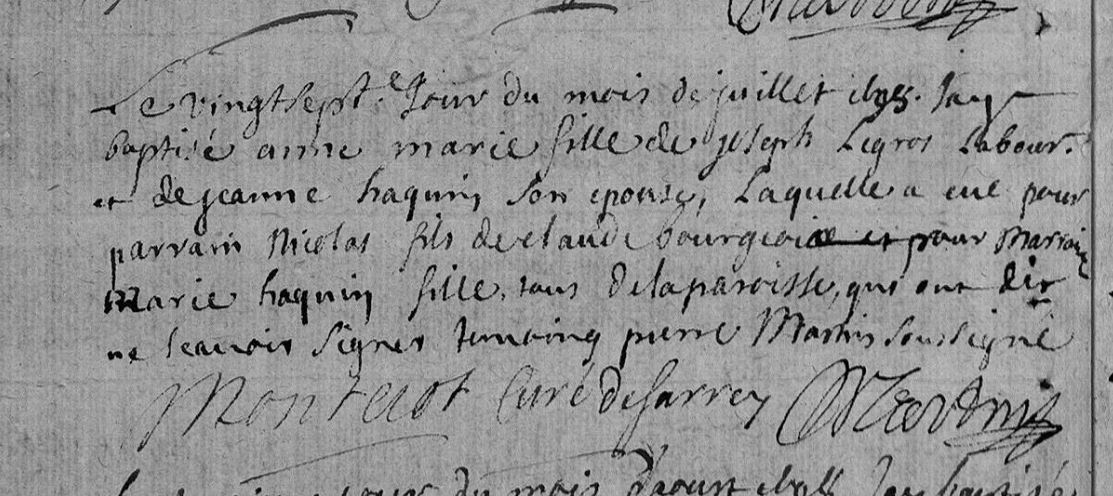 Le vingtsept.e Jour du mois de juillet Jay
baptisé anne marie fille de joseph Legros Labour.
et de jeanne haquin son epouse, Laquelle a eue pour
parrain Nicolas fils de claude bourgeois et pour Marraine
Marie haquin fille, tous de la paroisse, qui ont dit
ne scavoir signer temoing pierre Martin soussigné
Montecot Curé de Sarrey Martin
jour du mois d'aoust Jay baptisé